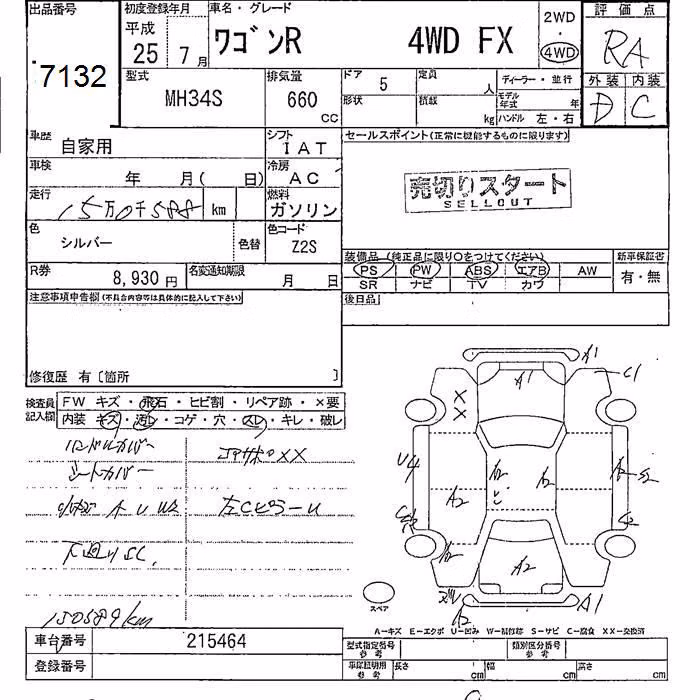 出品番号
7132
初度登録年月
平成
25 7月
車名・グレード
ワゴンR 4WD FX
2WD
・
4WD
評価点
RA
外装 内装
D C
型式
MH34S
排気量
660
CC
ドア
5
定員
人
形状
積載
kg
ディーラー・並行
モデル年式
年
ハンドル 左・右
車歴
自家用
シフト
IAT
車検
年 月( 日)
冷房
AC
走行
15万0千588 km
燃料
ガソリン
色
シルバー
色替
色コード
Z2S
R券
8,930円
名変通知期限
月 日
セールスポイント(正常に機能するものに限ります)
売切りスタート
SELLOUT
装備品(純正品に限り○をつけてください)
PS PW ABS エアB AW
SR ナビ TV カワ
新車保証書
有・無
後日品
注意事項申告欄(不具合内容等は具体的に記入して下さい)
修復歴 有〔箇所 〕
検査員
記入欄
FW キズ・飛石・ヒビ割・リペア跡・×要
内装 キズ・汚レ・コゲ・穴・スレ・キレ・破レ
ハンドルカバー
シートカバー
コアサポXX
左Cピラーu
下廻りSC
150589km
A1
A1
C1
X
X
U4
A2
A2
A2
A2
A2
S2
A2
A1
A2
スペア
A−キズ E−エクボ U−凹み W−補修跡 S−サビ C−腐食 XX−交換済
車台番号
215464
登録番号
型式指定番号
参考
類別区分番号
参考
車庫証明用
参考
長さ cm
幅 cm
高さ cm